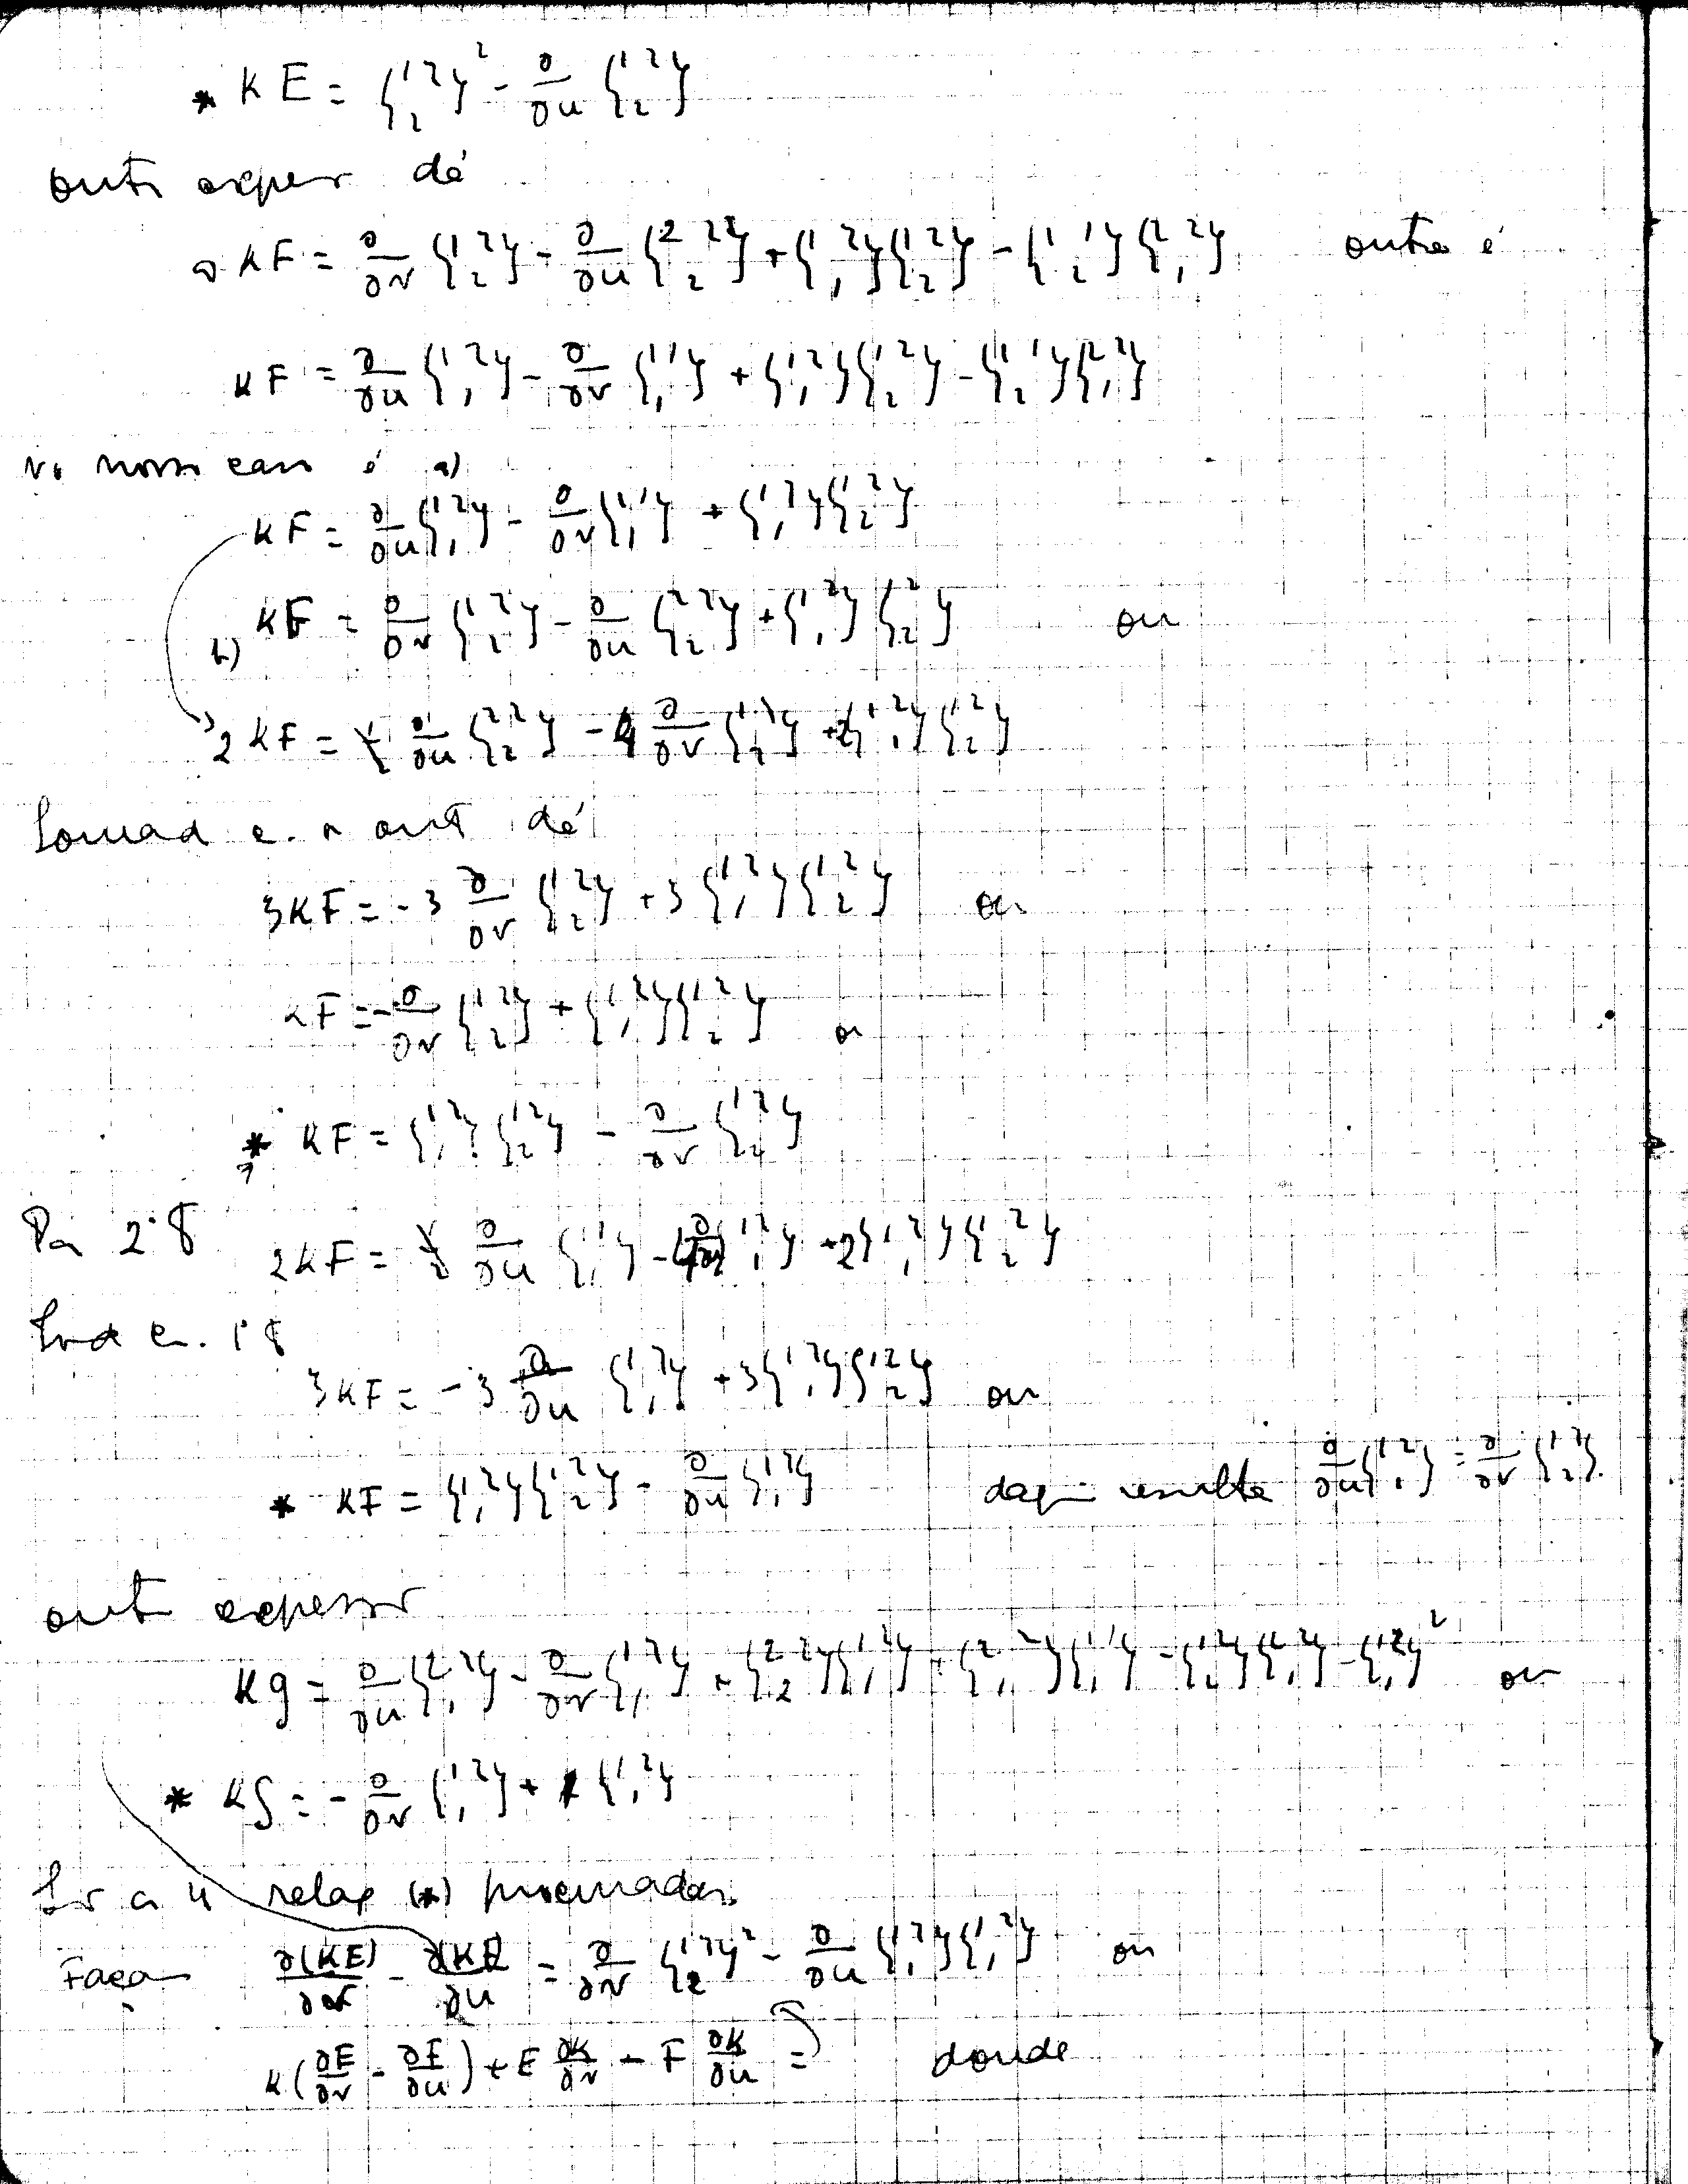 * KE = {¹²₂}² - ∂/∂u {¹²₂}
outr expr dá
KF = ∂/∂v {¹²₂} - ∂/∂u {²²₂} + {¹²₁}{¹²₂} - {¹¹₂}{²²₁} outra é
KF = ∂/∂u {¹²₁} - ∂/∂v {¹¹₁} + {¹²₁}{¹²₂} - {¹¹₂}{²²₁}
No nosso caso é a)
KF = ∂/∂u {¹²₁} - ∂/∂v {¹¹₁} + {¹²₁}{¹²₂}
b) KF = ∂/∂v {¹²₂} - ∂/∂u {²²₂} + {¹²₁}{¹²₂} ou
2KF = ∂/∂u {²²₂} - 4 ∂/∂v {¹²₂} + 2{¹²₁}{¹²₂}
Somad c. a out dá
3KF = -3 ∂/∂v {¹²₂} + 3{¹²₁}{¹²₂} ou
KF = -∂/∂v {¹²₂} + {¹²₁}{¹²₂} ou
* KF = {¹²₁}{¹²₂} - ∂/∂v {¹²₂}
Da 2ª
2KF = ∂/∂u {¹¹₁} - 4 ∂/∂u {¹²₁} + 2{¹²₁}{¹²₂}
3KF = -3 ∂/∂u {¹²₁} + 3{¹²₁}{¹²₂} ou
* KF = {¹²₁}{¹²₂} - ∂/∂u {¹²₁} daqui resulta ∂/∂u {¹²₁} = ∂/∂v {¹²₂}
outr expressr
Kg = ∂/∂u {²²₁} - ∂/∂v {¹²₁} + {²²₂}{¹²₁} + {²²₁}{¹¹₁} - {¹²₂}{²²₁} - {¹²₁}² ou
* Kg = -∂/∂v {¹²₁} + {¹²₁}
as 4 relaç (*) procuradas
Faça ∂(KE)/∂v - ∂(KF)/∂u = ∂/∂v {¹²₂}² - ∂/∂u {¹²₂}{¹²₁} ou
K(∂E/∂v - ∂F/∂u) + E ∂K/∂v - F ∂K/∂u = donde